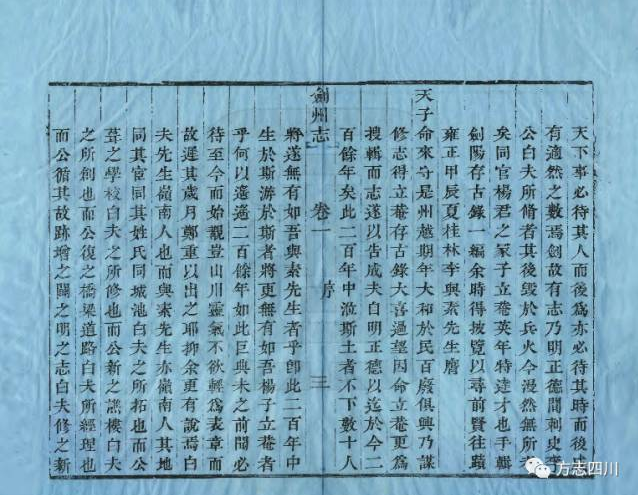 天下事必待其人而後爲亦必待其時而後成
有適然之數焉劍故有志乃明正德間刺史李
公白夫所脩者其後毀於兵火今漫然無所考
矣同官楊君之冢子立菴英年特達才也手輯
劍陽存古錄一編余時得披覽以尋前賢往蹟
雍正甲辰夏桂林李興素先生膺
天子命來守是州越期年大和於民百廢俱興乃謀
修志得立菴存古錄大喜過望因命立菴更爲
搜輯而志遂以告成夫自明正德以迄於今二
百餘年矣此二百年中涖斯土者不下數十人
劍州志 卷一 序 三
將遂無有如吾興素先生者乎卽此二百年中
生於斯游於斯者將更無有如吾楊子立菴者
乎何以遙遙二百餘年如此巨典未之前聞必
待至今而始觀豈山川靈氣不欲輕爲表章而
故遲其歲月鄭重以出之耶抑余更有說焉白
夫先生嶺南人也而興素先生亦嶺南人其地
同其宦同其姓氏同城池白夫之所拓也而公
葺之學校白夫之所修也而公新之譙樓白夫
之所創也而公復之橋梁道路白夫所經理也
而公循其故跡增之闢之明之志白夫修之新
方志四川